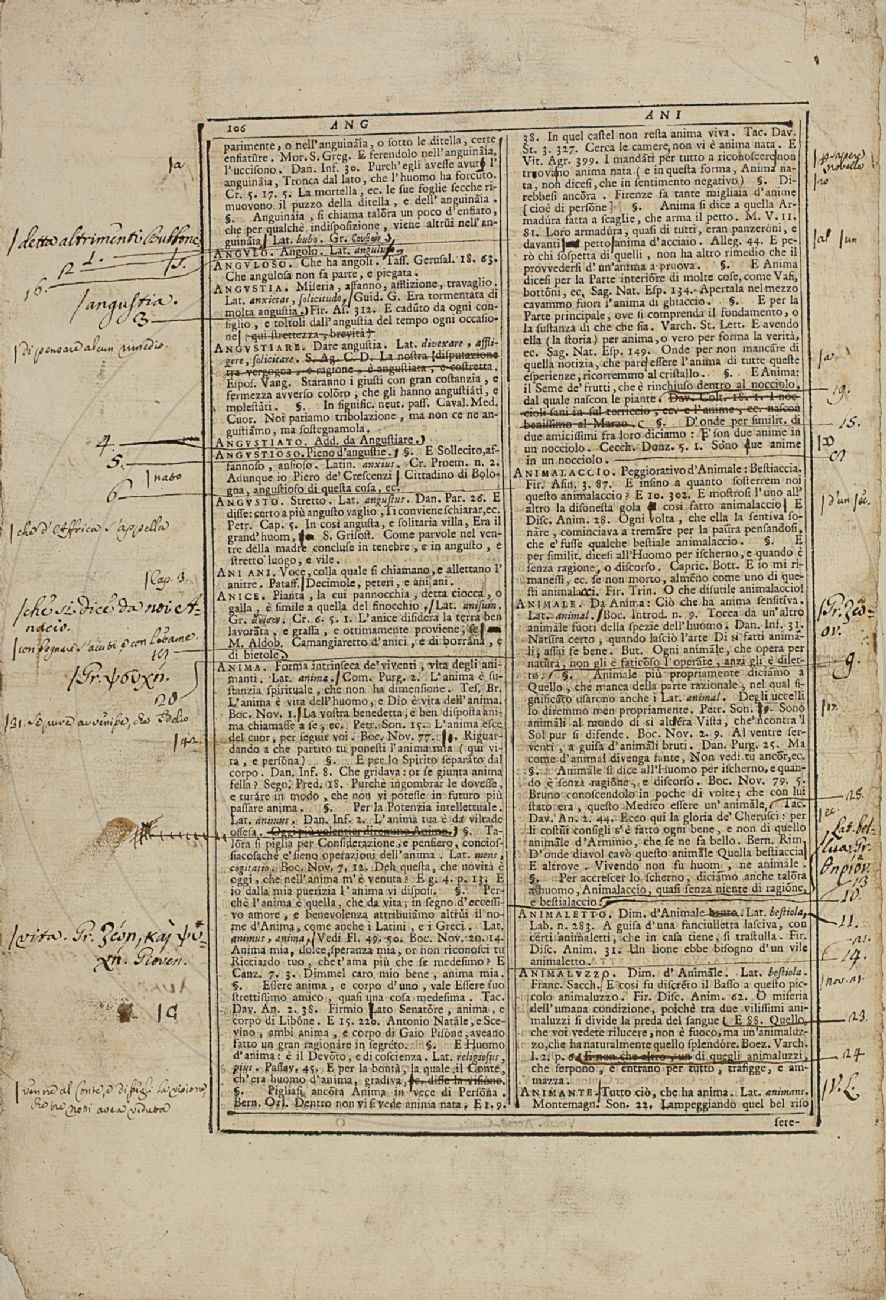 106
ANG
ANI
parimente, o nell'anguinàia, o sotto le ditella, certe
enfiature. Mor. S. Greg. E ferendolo nell'anguinàia,
l'uccisono. Dan. Inf. 30. Purch'egli avesse avuta l'
anguinàia, Tronca dal lato, che l'huomo ha forcuto.
Cr. 5. 17. 5. La mortella, ec. le sue foglie secche ri-
muovono il puzzo della ditella, e dell'anguinàia.
§. Anguinàia, si chiama talóra un poco d'enfiato,
che per qualche indisposizione, viene altrúi nell'an-
guinàia Lat. bubo. Gr.
ANGULO. Angolo. Lat. angulus
ANGULOSO. Che ha angoli. Tass. Gerusal. 18. 63.
Che angulosa non fa parte, e piegata.
ANGUSTIA. Miseria, affanno, afflizione, travaglio.
Lat. anxietas, solicitudo, Guid. G. Era tormentata di
molta angustia. Fir. As. 312. E cadúto da ogni con-
siglio, e toltoli dall'angustia del tempo ogni occasio-
ne (qui strettezza, brevità)
ANGUSTIARE. Dare angustia. Lat. divexare, affli-
gere, solicitare. S. Ag. C. D. La nostra disputazione
tra vergogna, e ragione, è angustiata, e costretta.
Espos. Vang. Staranno i giusti con gran costanzia, e
fermezza avverso colóro, che gli hanno angustiáti, e
molestáti. §. In signific. neut. pass. Caval. Med.
Cuor. Noi patiamo tribolazione, ma non ce ne an-
gustiámo, ma sostegnamola.
ANGUSTIATO. Add. da Angustiare.
ANGUSTIOSO. Pieno d'angustie. §. E Sollecito, af-
fannoso, ansioso. Latin. anxius. Cr. Proem. n. 2.
Adunque io Piero de' Crescenzi Cittadino di Bolo-
gna, angustioso di questa cosa, ec.
ANGUSTO. Stretto. Lat. angustus. Dan. Par. 26. E
disse: certo a più angusto vaglio, Ti conviene schiarar, ec.
Petr. Cap. 5. In così angusta, e solitaria villa, Era il
grand'huom, S. Grisost. Come parvole nel ven-
tre della madre concluse in tenebre, e in angusto, e
stretto luogo, e vile.
ANI ANI. Voce, colla quale si chiamano, e allettano l'
anitre. Pataff. Decimole, peteri, e ani ani.
ANICE. Pianta, la cui pannocchia, detta ciocca, o
galla, è simile a quella del finocchio, Lat. anisum.
Gr. Cr. 6. 5. 1. L'anice disidera la terra ben
lavorata, e grassa, e ottimamente proviene, se
M. Aldob. Camangiaretto d'anici, e di borrana, e
di bietole
ANIMA. Forma intrinseca de' viventi, vita degli ani-
manti. Lat. anima. Com. Purg. 2. L'anima è su-
stanzia spirituale, che non ha dimensione. Tes. Br.
L'anima è vita dell'huomo, e Dio è vita dell'anima.
Boc. Nov. 1. La vostra benedetta, e ben disposta ani-
ma chiamasse a se, ec. Petr. Son. 15. L'anima esce
del cuor, per seguir voi. Boc. Nov. 77. Riguar-
dando a che partito tu ponesti l'anima mia (qui vi-
ta, e persóna) §. E per lo Spirito separato dal
corpo. Dan. Inf. 8. Che gridava: or se giunta anima
fella? Segn. Pred. 18. Purchè ingombrar le dovesse,
e turáre in modo, che non vi potesse in futuro più
passare anima. §. Per la Potenzia intellettuale.
Lat. animus. Dan. Inf. 2. L'anima tua è da viltade
offesa. Oggi più volentier diremmo Animo. §. Ta-
lóra si piglia per Considerazione, e pensiero, concios-
siacosachè e' sieno operazioni dell'anima. Lat. mens,
cogitatio. Boc. Nov. 7. 12. Deh questa, che novità è
oggi, che nell'anima m'è venuta? E g. 4. p. 13. E
io dalla mia puerizia l'anima vi disposi. §. Per-
chè l'anima è quella, che da vita; in segno d'eccessi-
vo amore, e benevolenza attribuiámo altrúi il no-
me d'Anima, come anche i Latini, e i Greci. Lat.
animus, anima, Vedi Fl. 49. 50. Boc. Nov. 20. 14.
Anima mia, dolce speranza mia, or non riconosci tu
Ricciardo tuo, che t'ama più che se medesimo? E
Canz. 7. 3. Dimmel caro mio bene, anima mia.
§. Essere anima, e corpo d'uno, vale Essere suo
strettissimo amico, quasi una cosa medesima. Tac.
Dav. An. 2. 38. Firmio Lato Senatóre, anima, e
corpo di Libóne. E 15. 220. Antonio Natále, e Sce-
vino, ambi anima, e corpo di Gaio Pisóne, aveano
fatto un gran ragionáre in segréto. §. E Huomo
d'anima: è il Devóto, e di coscienza. Lat. religiosus,
pius. Passav. 45. E per la bontà, la quale il Conte,
ch'era huomo d'anima, gradiva, (c. disse la visione.
§. Pigliasi ancóra Anima in vece di Persóna.
Bern. Orl. Dentro non vi si vede anima nata, E 1. 9.
38. In quel castel non resta anima viva. Tac. Dav.
St. 3. 327. Cerca le camere, non vi è anima nata. E
Vit. Agr. 399. I mandáti per tutto a riconoscere non
trováno anima nata (e in questa forma, Anima na-
ta, non dicesi, che in sentimento negativo) §. Di-
rebbesi ancóra. Firenze fa tante migliaia d'anime
(cioè di persóne) §. Anima si dice a quella Ar-
madúra fatta a scaglie, che arma il petto. M. V. 11.
81. Loro armadúra, quasi di tutti, eran panzeróni, e
davanti petto anima d'acciaio. Alleg. 44. E pe-
rò chi sospetta di quelli, non ha altro rimedio che il
provvedersi d'un'anima a pruova. §. E Anima
dicesi per la Parte interióre di molte cose, come Vasi,
bottóni, ec. Sag. Nat. Esp. 134. Apertala nel mezzo
cavammo fuori l'anima di ghiaccio. §. E per la
Parte principale, ove si comprenda il fondamento, o
la sustanza di che che sia. Varch. St. Lett. E avendo
ella (la storia) per anima, o vero per forma la verità,
ec. Sag. Nat. Esp. 149. Onde per non mancáre di
quella notizia, che par essere l'anima di tutte queste
esperienze, ricorremmo al cristallo. §. E Anima:
il Seme de' frutti, che è rinchiuso dentro al nocciolo,
dal quale nascon le piante
benissimo al Marzo. §. D'onde per similit. di
due amicissimi fra loro diciamo: E' son due anime in
un nocciolo. Cecch. Donz. 5. 1. Sóno due anime
in un nocciolo.
ANIMALACCIO. Peggiorativo d'Animale: Bestiaccia.
Fir. Asin. 3. 87. E insino a quanto sosterrem noi
questo animalaccio? E 10. 302. E mostrosi l'uno all'
altro la disonesta gola così fatto animalaccio E
Disc. Anim. 28. Ogni volta, che ella la sentiva so-
náre, cominciava a tremáre per la paúra pensandosi,
che e' fusse qualche bestiale animalaccio. §. E
per similit. dicesi all'Huomo per ischerno, e quando è
senza ragióne, o discorso. Capric. Bott. E io mi ri-
manessi, ec. se non morto, alméno come uno di que-
sti animalacci. Fir. Trin. O che disutile animalaccio!
ANIMALE. Da Anima: Ciò che ha anima sensitiva.
Lat. animal. Boc. Introd. n. 9. Tocca da un'altro
animale fuori della spezie dell'huomo. Dan. Inf. 31.
Natúra certo, quando lasciò l'arte Di sì fatti anima-
li, assai fe bene. But. Ogni animále, che opera per
natúra, non gli è faticóso l'operáre, anzi gli è dilet-
to. §. Animále più propriamente diciamo a
Quello, che manca della parte razionale, nel qual si-
gnificáto usarono anche i Lat. animal. Degli uccelli
lo diremmo men propriamente. Petr. Son. 19. Sono
animáli al mondo di sì altéra Vista, che'ncontra'l
Sol pur si difende. Boc. Nov. 2. 9. Al ventre ser-
venti, a guisa d'animáli bruti. Dan. Purg. 25. Ma
come d'animal divenga fante, Non vedi tu ancór, ec.
§. Animále si dice all'Huomo per ischerno, e quan-
do è senza ragióne, e discorso. Boc. Nov. 79. 5.
Bruno conoscendolo in poche di volte; che con lui
stato era, questo Medico essere un'animále, Tac.
Dav. An. 2. 44. Ecco qui la gloria de' Cherusci: per
li costúi consigli s'è fatto ogni bene, e non di quello
animále d'Arminio, che se ne fa bello. Bern. Rim.
D'onde diavol cavò questo animále Quella bestiaccia?
E altrove. Vivendo non fu huom, ne animále.
§. Per accrescer lo scherno, diciámo anche talóra
a huomo, Animalaccio, quasi senza niente di ragióne,
e bestialaccio:
ANIMALETTO. Dim. d'Animale bruto. Lat. bestiola,
Lab. n. 283. A guisa d'una fanciulletta lasciva, con
certi animaletti, che in casa tiene, si trastulla. Fir.
Disc. Anim. 31. Un lione ebbe bisogno d'un vile
animaletto.
ANIMALUZZO. Dim. d'Animále. Lat. bestiola.
Franc. Sacch. E così fu discréto il Basso a questo pic-
colo animaluzzo. Fir. Disc. Anim. 62. O miseria
dell'umana condizione, poichè tra due vilissimi ani-
maluzzi si divide la preda del sangue E 88. Quello,
che voi vedete rilucere, non è fuoco, ma un'animaluz-
zo, che ha naturalmente quello splendóre. Boez. Varch.
l. 2. p. 6. E non che altro, un di quegli animaluzzi,
che serpono, e entrano per tutto, trafigge, e am-
mazza.
ANIMANTE. Tutto ciò, che ha anima. Lat. animans.
Montemagn. Son. 22. Lampeggiando quel bel riso
sere-
a
detta altrimenti Buffone
16.
angustia.
3
di pensare alcun rimedio
4
5
nato
6
che d'Affrica s'appella
Cap. 3.
che si dice da noi A-
nacio.
19
Gr. ψυχή.
20
vita. Gr. ζωή, καὶ ψυ-
χή. Gioven.
18
venne al Conte, e dissegli la visione
che tre nodi avea veduta
al
un
19.
15.
d'un
Gr. ζῶ-
ον.
9.
25.
ec.
Lat. bel-
lua, Gr.
θηρίον
13
10.
11.
14.
nov. 21.
23.
24
V. L.